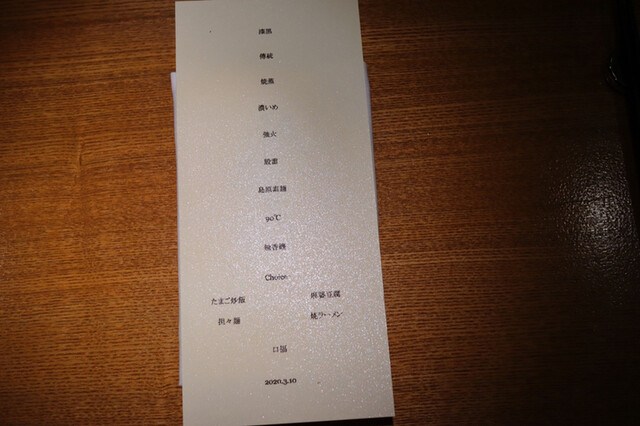 漆黒
傳統
焼蒸
濃いめ
強火
殻蓋
島原素麺
90℃
Choice
たまご炒飯 麻婆豆腐
担々麺 焼ラーメン
口福
2020.3.10